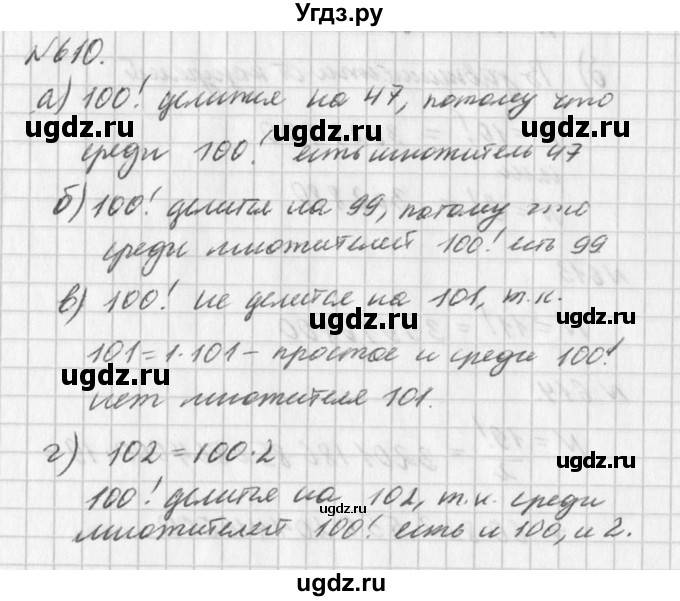 Угдз.ру
№610.
а) 100! делится на 47, потому что
среди 100! есть множитель 47
б) 100! делится на 99, потому что
среди множителей 100! есть 99
в) 100! не делится на 101, т.к.
101=1·101 – простое и среди 100!
нет множителя 101.
г) 102=100·2
100! делится на 102, т.к. среди
множителей 100! есть и 100, и 2.
ugdz.ru ugdz.ru
ugdz.ru ugdz.ru
ugdz.ru ugdz.ru
ugdz.ru ugdz.ru
ugdz.ru ugdz.ru
ugdz.ru